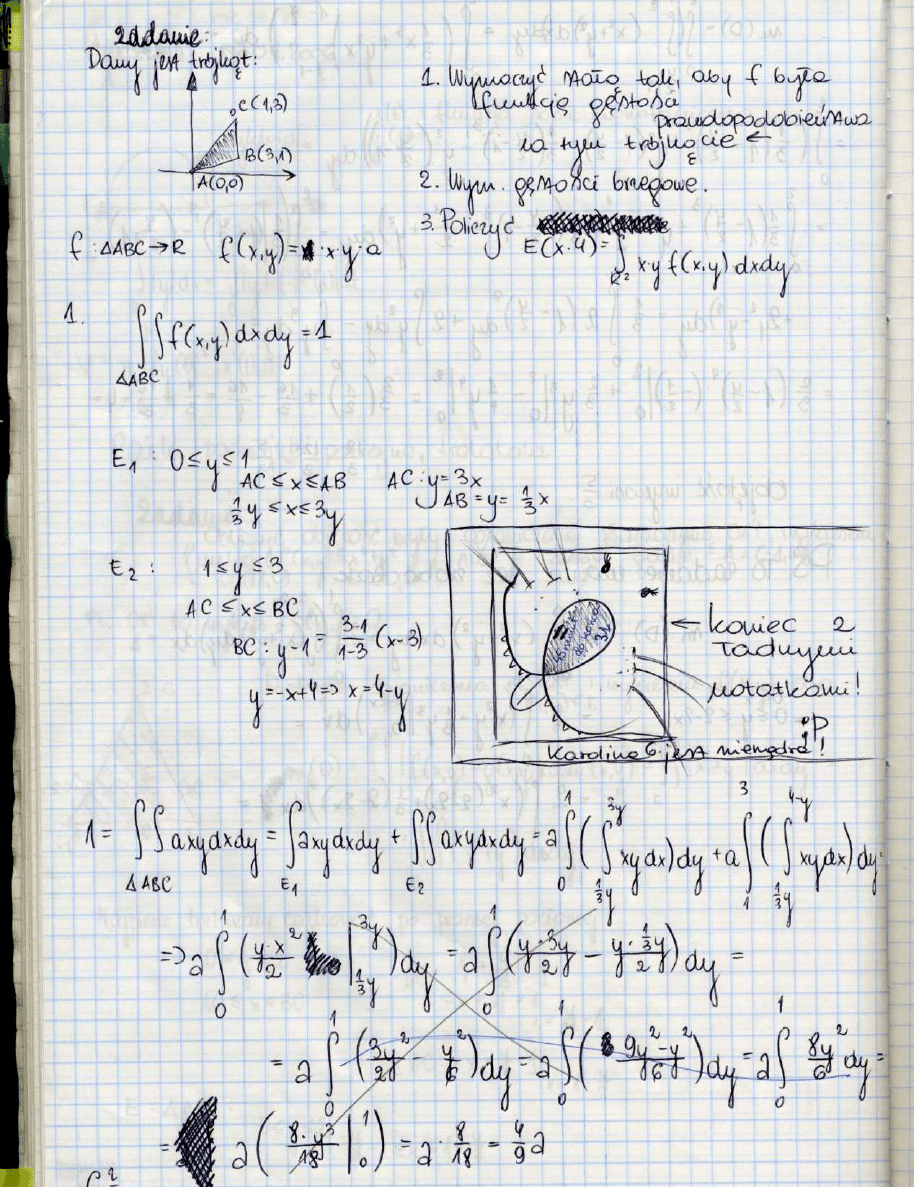 Zadanie:
Dany jest trójkąt:
C(1,3)
B(3,1)
A(0,0)
1. Wyznaczyć stałą tak, aby f była
funkcją gęstości
prawdopodobieństwa
na tym trójkącie ←
2. Wym. gęstości brzegowe.
3. Policzyć
E(x·y) = ∫ x·y f(x,y) dxdy
R²
f : ΔABC → R f(x,y) = x·y·a
1.
∫∫ f(x,y) dxdy = 1
ΔABC
E₁ : 0 ≤ y ≤ 1
AC ≤ x ≤ AB AC : y = 3x
1/3 y ≤ x ≤ 3y AB = y = 1/3 x
E₂ : 1 ≤ y ≤ 3
AC ≤ x ≤ BC
BC : y-1 = (3-1)/(1-3) (x-3)
y = -x+4 => x = 4-y
← koniec z
ładnymi
notatkami!
jp
Karolina G. jest niemądra!
1 = ∫∫_ΔABC axy dxdy = ∫_E₁ axy dxdy + ∫∫_E₂ axy dxdy = a ∫_0^1 ( ∫_{1/3 y}^{3y} xy dx) dy + a ∫_1^3 ( ∫_{1/3 y}^{4-y} xy dx) dy =
=> a ∫_0^1 ( y·x²/2 |_{1/3 y}^{3y} ) dy = a ∫_0^1 ( y·3y/2 - y·1/3 y/2 ) dy =
= a ∫_0^1 ( 3y²/2 - y²/6 ) dy = a ∫_0^1 ( (9y²-y²)/6 ) dy = a ∫_0^1 8y²/6 dy =
= a ( 8·y³/18 |_0^1 ) = a · 8/18 = 4/9 a